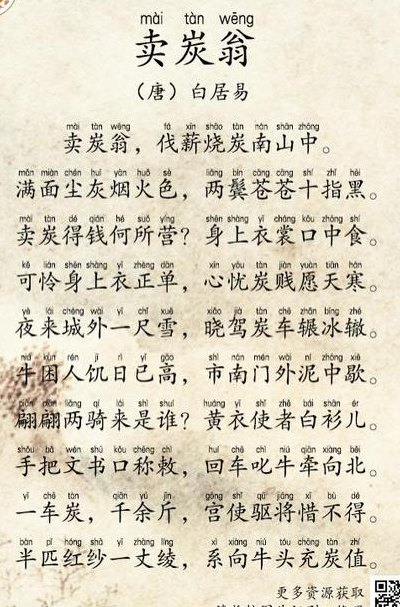 mài tàn wēng
卖炭翁
（唐）白居易
mài tàn wēng fá xīn shāo tàn nán shān zhōng
卖炭翁，伐薪烧炭南山中。
mǎn miàn chén huī yān huǒ sè liǎng bìn cāng cāng shí zhǐ hēi
满面尘灰烟火色，两鬓苍苍十指黑。
mài tàn dé qián hé suǒ yíng shēn shàng yī cháng kǒu zhōng shí
卖炭得钱何所营？身上衣裳口中食。
kě lián shēn shàng yī zhèng dān xīn yōu tàn jiàn yuàn tiān hán
可怜身上衣正单，心忧炭贱愿天寒。
yè lái chéng wài yì chǐ xuě xiǎo jià tàn chē niǎn bīng zhé
夜来城外一尺雪，晓驾炭车辗冰辙。
niú kùn rén jī rì yǐ gāo shì nán mén wài ní zhōng xiē
牛困人饥日已高，市南门外泥中歇。
piān piān liǎng qí lái shì shuí huáng yī shǐ zhě bái shān ér
翩翩两骑来是谁？黄衣使者白衫儿。
shǒu bǎ wén shū kǒu chēng chì huí chē chì niú qiān xiàng běi
手把文书口称敕，回车叱牛牵向北。
yì chē tàn qiān yú jīn gōng shǐ qū jiāng xī bù dé
一车炭，千余斤，宫使驱将惜不得。
bàn pǐ hóng shā yí zhàng líng xì xiàng niú tóu chōng tàn zhí
半匹红纱一丈绫，系向牛头充炭值。
更多资源获取